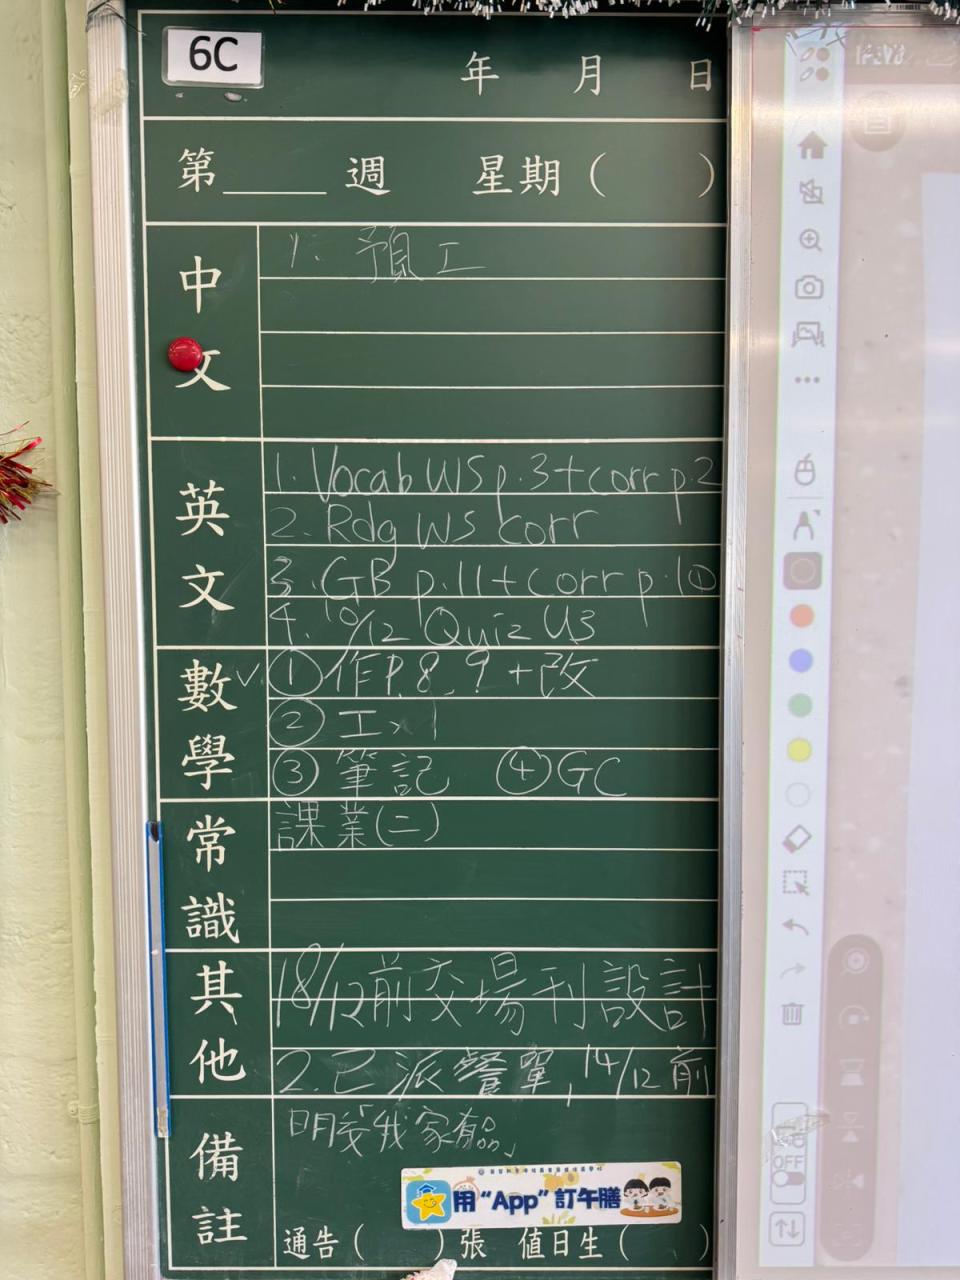 6C
年 月 日
第____週 星期( )
中文
1. 預工
英文
1. Vocab WS p.3+corr p.2
2. Rdg WS corr
3. GB p.11+corr p.10
4. 10/12 Quiz U3
數學
✓ ①作P.8, 9 +改
② 工x1
③ 筆記 ④GC
常識
課業(二)
其他
18/12前交場刊設計
2. 已派餐單, 14/12前
備註
明交「我家有品」
用“App”訂午膳
通告( )張 值日生( )
OFF